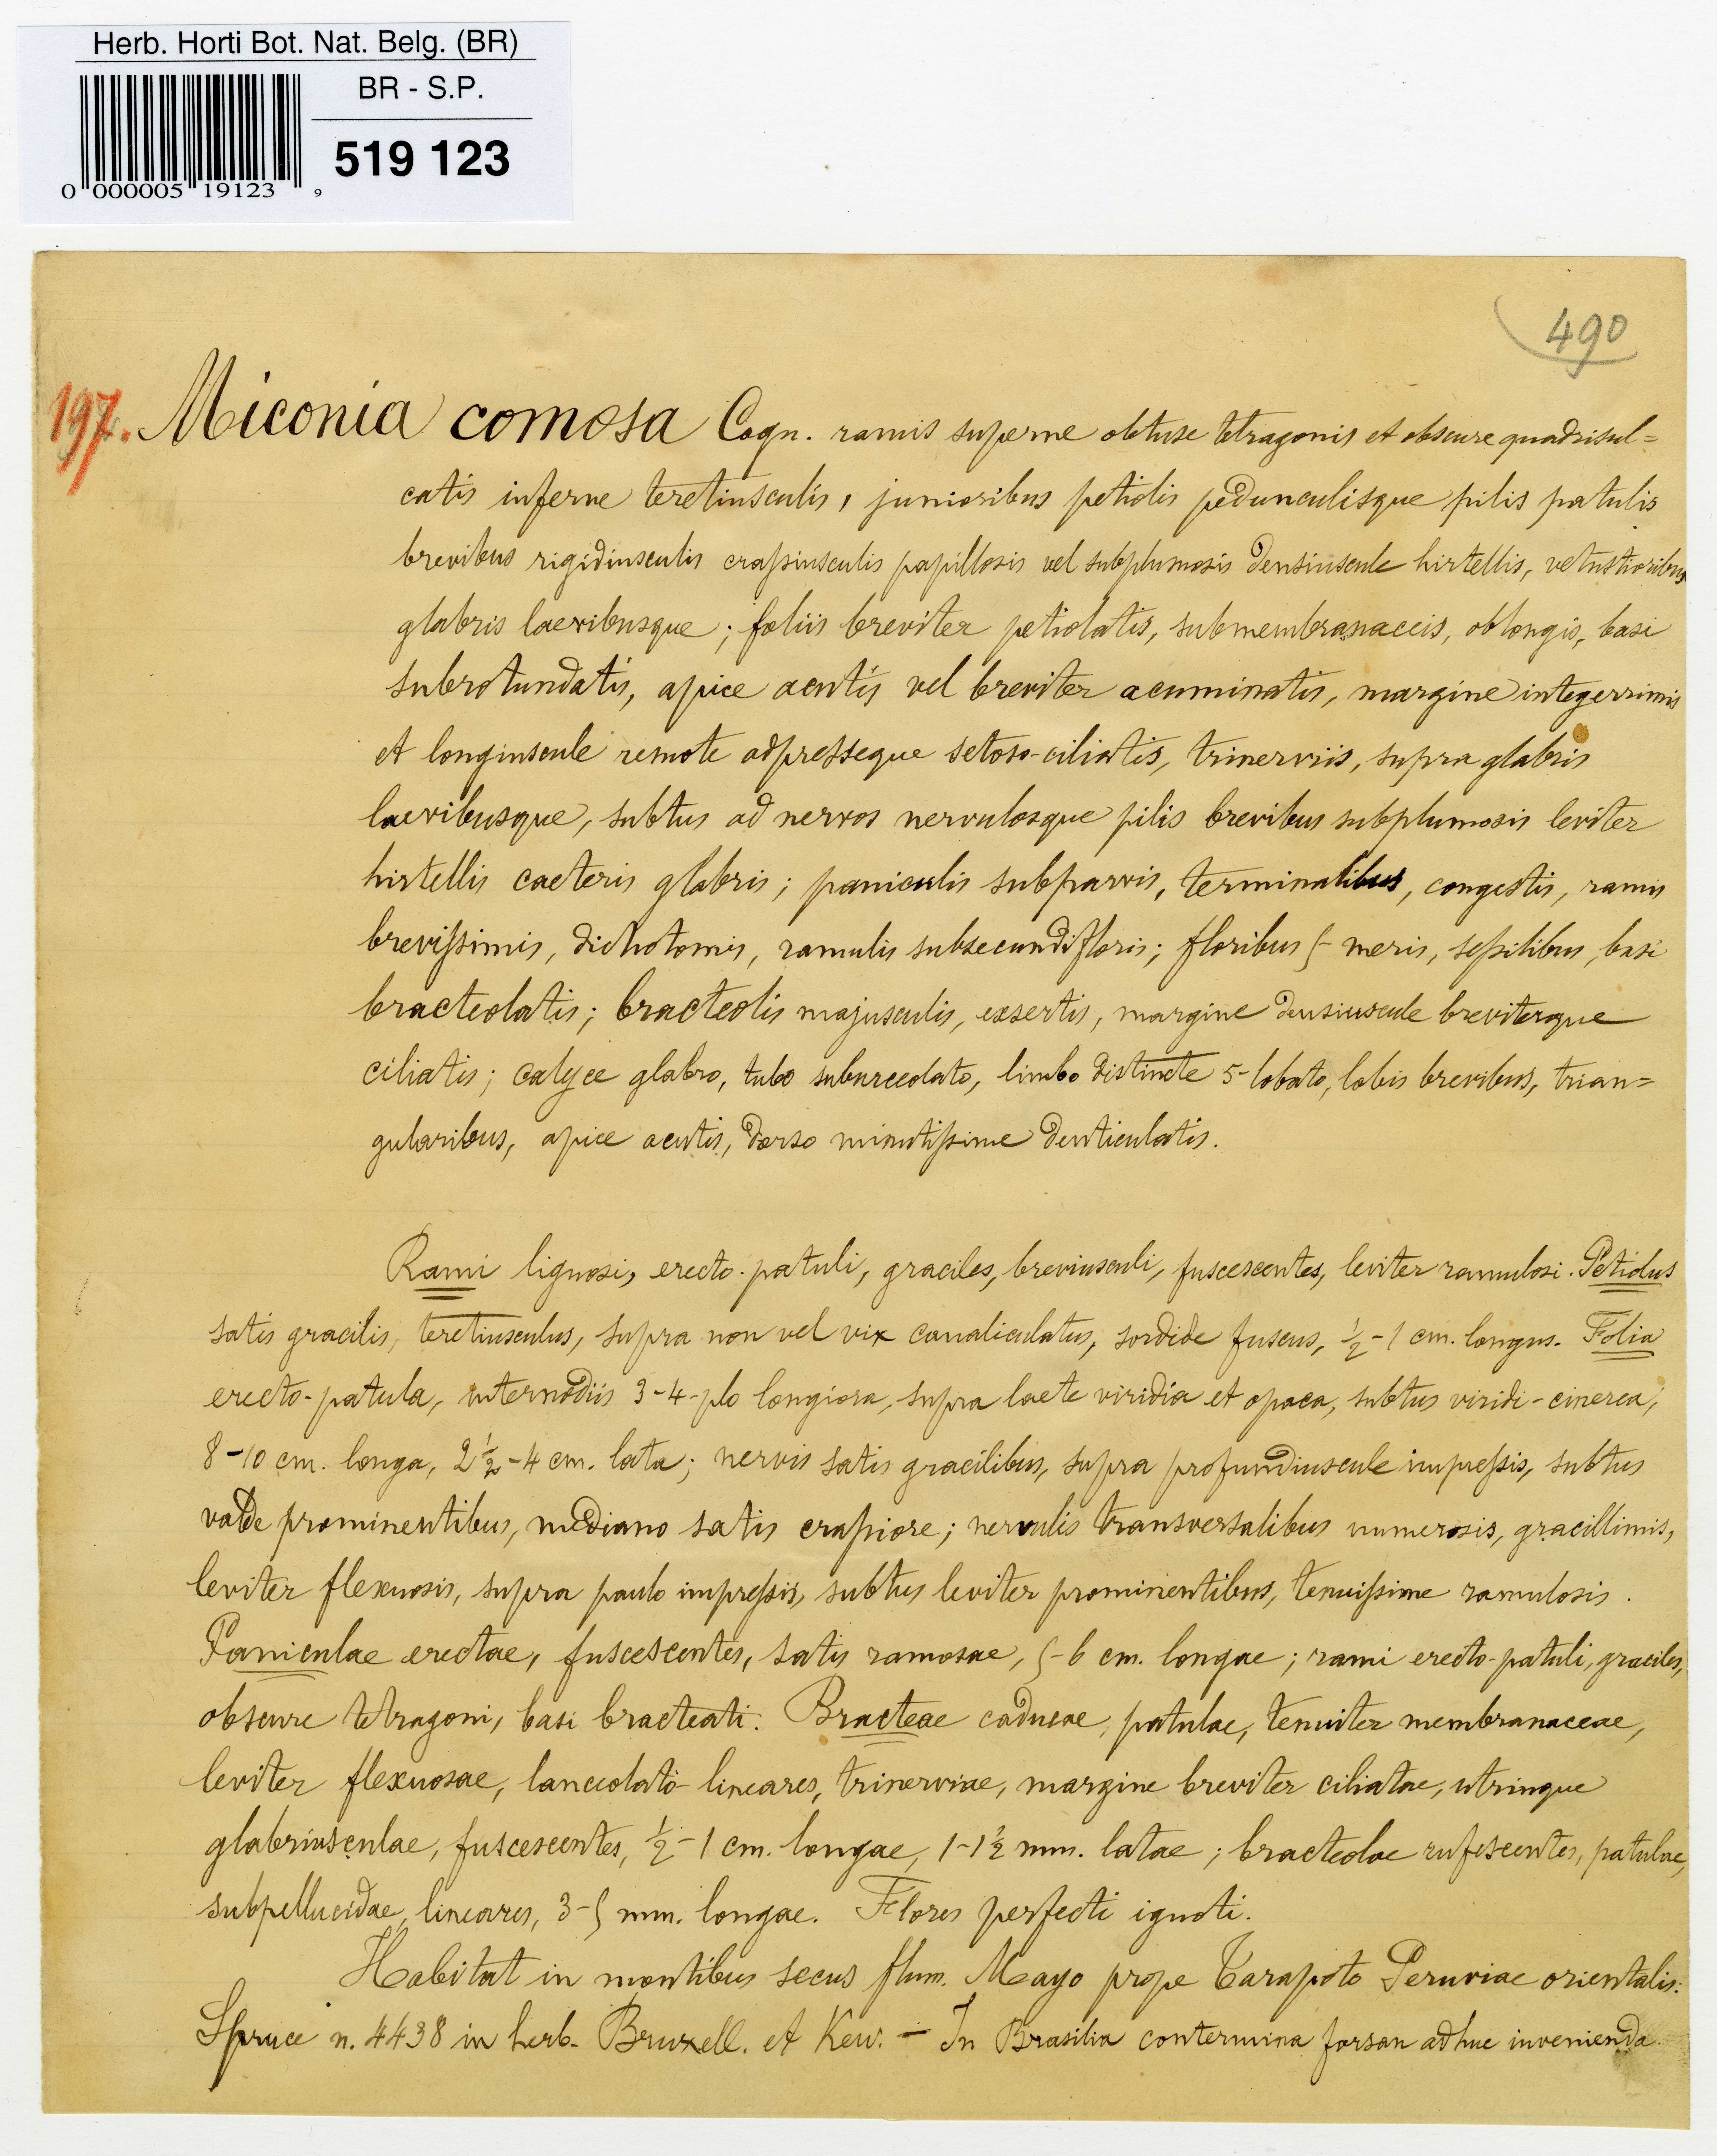 Herb. Horti Bot. Nat. Belg. (BR)
BR - S.P.
519 123
0 000005 19123 9
490
197. Miconia comosa Cogn. ramis superne obtuse tetragonis et obscure quadrisul=
catis inferne teretiusculis, junioribus petiolis pedunculisque pilis patulis
brevibus rigidiusculis crassiusculis papillosis vel subplumosis densiuscule hirtellis, vetustioribus
glabris laevibusque; foliis breviter petiolatis, submembranaceis, oblongis, basi
subrotundatis, apice acutis vel breviter acuminatis, margine integerrimis
et longiuscule remote adpresseque setoso-ciliatis, trinerviis, supra glabris
laevibusque, subtus ad nervos nervulosque pilis brevibus subplumosis leviter
hirtellis caeteris glabris; paniculis subparvis, terminalibus, congestis, ramis
brevissimis, dichotomis, ramulis subsecundifloris; floribus 5-meris, sessilibus, basi
bracteolatis; bracteolis majusculis, exsertis, margine densiuscule breviterque
ciliatis; calyce glabro, tubo suburceolato, limbo distincte 5-lobato, lobis brevibus, trian=
gularibus, apice acutis, dorso minutissime denticulatis.
Rami lignosi, erecto-patuli, graciles, breviusculi, fuscescentes, leviter ramulosi. Petiolus
satis gracilis, teretiusculus, supra non vel vix canaliculatus, sordide fuscus, ½-1 cm. longus. Folia
erecto-patula, internodiis 3-4-plo longiora, supra laete viridia et opaca, subtus viridi-cinerea,
8-10 cm. longa, 2½-4 cm. lata; nervis satis gracilibus, supra profundiuscule impressis, subtus
valde prominentibus, mediano satis crassiore; nervulis transversalibus numerosis, gracillimis,
leviter flexuosis, supra paulo impressis, subtus leviter prominentibus, tenuissime ramulosis.
Paniculae erectae, fuscescentes, satis ramosae, 5-6 cm. longae; rami erecto-patuli, graciles,
obscure tetragoni, basi bracteati. Bracteae caducae, patulae, tenuiter membranaceae,
leviter flexuosae, lanceolato-lineares, trinerviae, margine breviter ciliatae, utrinque
glabriusculae, fuscescentes, ½-1 cm. longae, 1-1½ mm. latae; bracteolae rufescentes, patulae,
subpellucidae, lineares, 3-5 mm. longae. Flores perfecti ignoti.
Habitat in montibus secus flum. Mayo prope Tarapoto Peruviae orientalis:
Spruce n. 4438 in herb. Bruxell. et Kew. - In Brasilia contermina forsan adhuc invenienda.